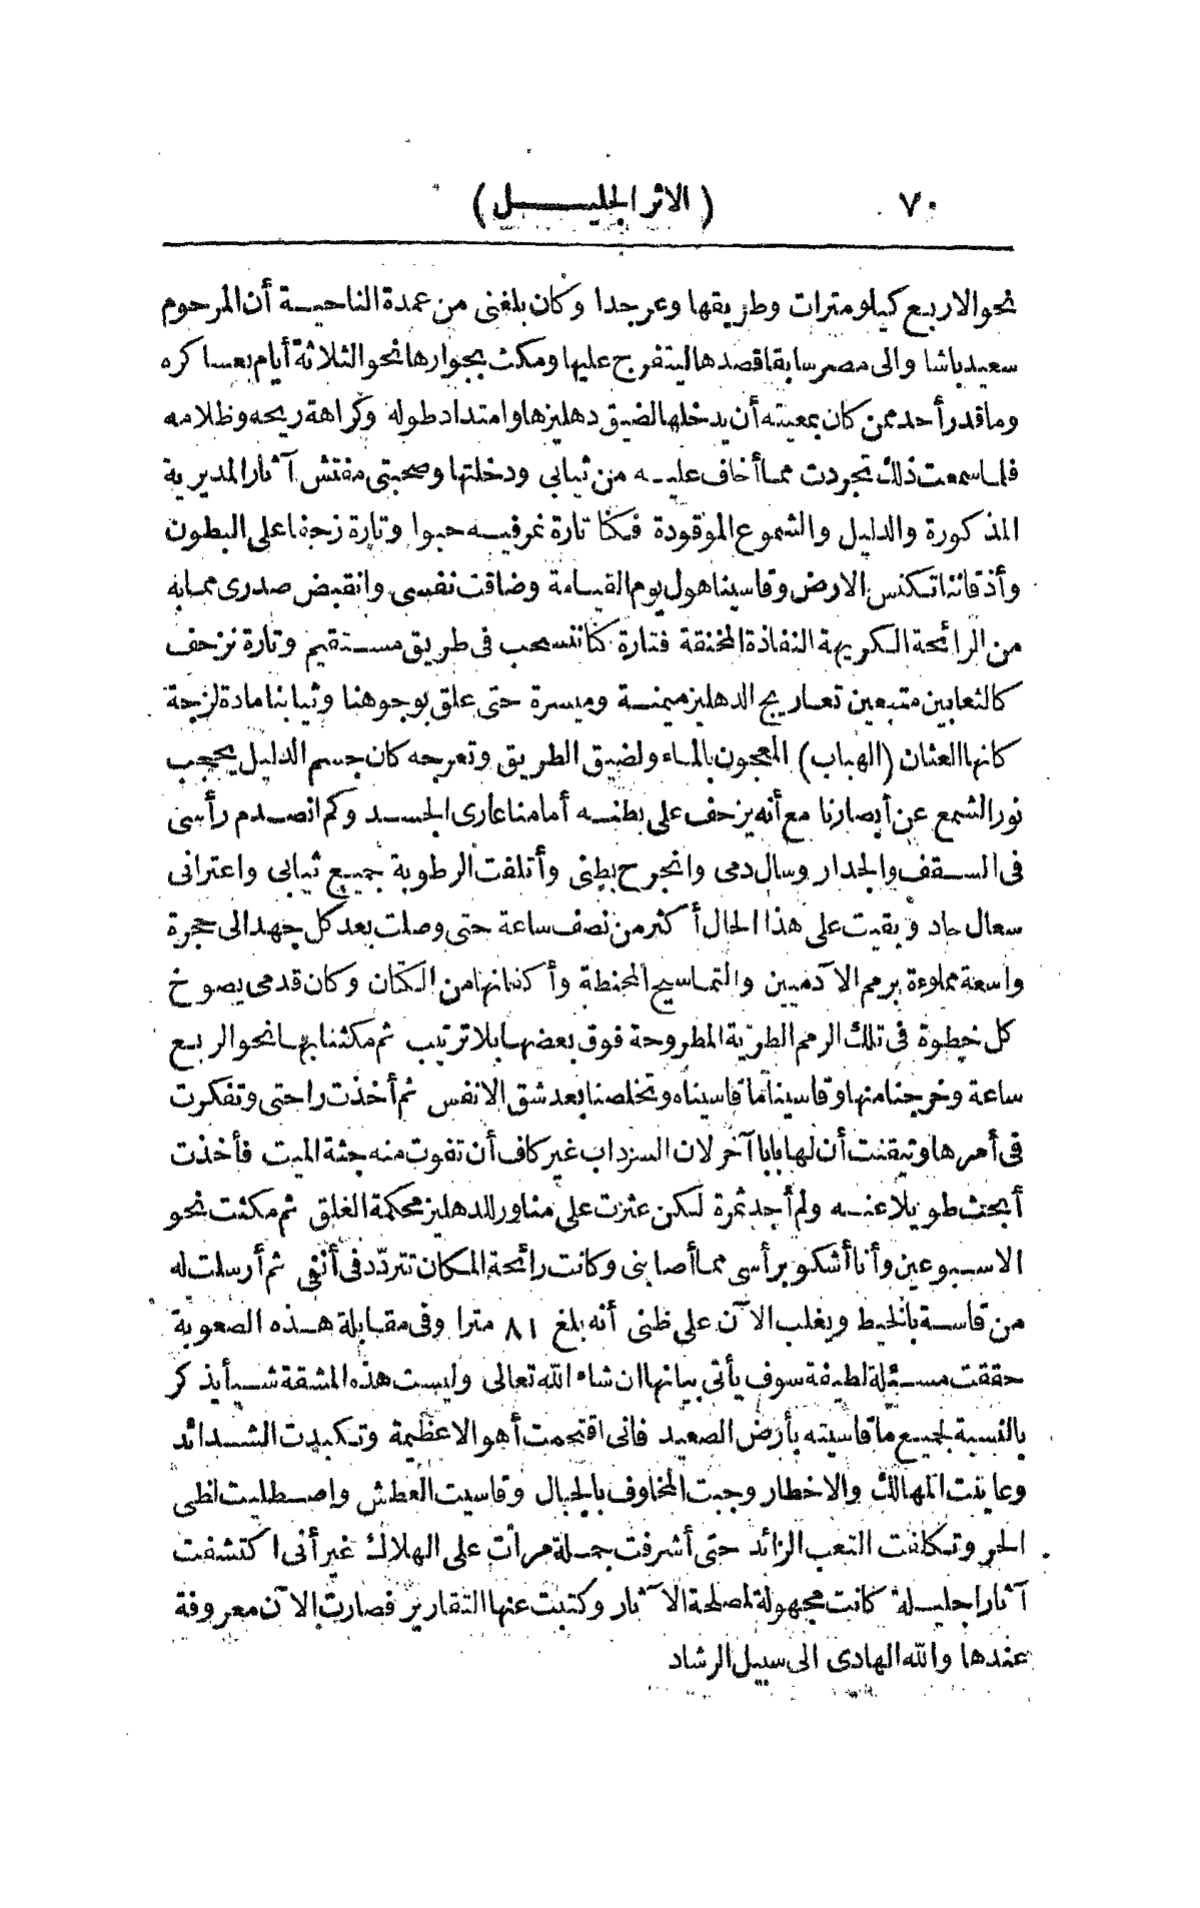 ٧٠ (الاثر الجليل)
نحو الاربع كيلومترات وطريقها وعر جدا وكان بلغنى من عمدة الناحية أن المرحوم
سعيد باشا والى مصر سابقا قصدها ليتفرج عليها ومكث بجوارها نحو الثلاثة أيام بعساكره
وما قدر أحد ممن كان بمعيته أن يدخلها لضيق دهليزها وامتداد طوله وكراهة ريحه وظلامه
فلما سمعت ذلك تجردت مما أخاف عليه من ثيابى ودخلتها وصحبتى مفتش آثار المديرية
المذكورة والدليل والشموع الموقودة فكنا تارة نمر فيه حبوا وتارة زحفا على البطون
وأذقاننا تكنس الارض وقاسينا هول يوم القيامة وضاقت نفسى وانقبض صدرى مما به
من الرائحة الكريهة النفاذة المخنقة فتارة كنا ننسحب فى طريق مستقيم وتارة نزحف
كالثعابين متبعين تعاريج الدهليز ميمنة وميسرة حتى علق بوجوهنا وثيابنا مادة لزجة
كانها العثان (الهباب) المعجون بالماء ولضيق الطريق وتعرجه كان جسم الدليل يحجب
نور الشمع عن أبصارنا مع أنه يزحف على بطنه أمامنا عارى الجسد وكم انصدم رأسى
فى السقف والجدار وسال دمى وانجرح بطنى وأتلفت الرطوبة جميع ثيابى واعترانى
سعال حاد وبقيت على هذا الحال أكثر من نصف ساعة حتى وصلت بعد كل جهد الى حجرة
واسعة مملوءة برمم الآدميين والتماسيح المحنطة وأكفانها من الكتان وكان قدمى يصوخ
كل خطوة فى تلك الرمم الطرية المطروحة فوق بعضها بلا ترتيب ثم مكثنا بها نحو الربع
ساعة وخرجنا منها وقاسينا ما قاسيناه وتخلصنا بعد شق الانفس ثم أخذت راحتى وتفكرت
فى أمرها وتيقنت أن لها بابا آخر لان السرداب غير كاف أن تفوت منه جثة الميت فأخذت
أبحث طويلا عنه ولم أجد ثمرة لكن عثرت على مناور للدهليز محكمة الغلق ثم مكثت نحو
الاسبوعين وأنا أشكو برأسى مما أصابنى وكانت رائحة المكان تتردّد فى أنفى ثم أرسلت له
من قاسه بالخيط ويغلب الآن على ظنى أنه بلغ ٨١ مترا وفى مقابلة هذه الصعوبة
حققت مسئلة لطيفة سوف يأتى بيانها ان شاء الله تعالى وليست هذه المشقة شيأ يذكر
بالنسبة لجميع ما قاسيته بأرض الصعيد فانى اقتحمت أهوالا عظيمة وتكبدت الشدائد
وعاينت المهالك والاخطار وجبت المخاوف بالجبال وقاسيت العطش واصطليت لظى
الحر وتكلفت التعب الزائد حتى أشرفت جملة مرات على الهلاك غير أنى اكتشفت
آثارا جليلة كانت مجهولة لمصلحة الآثار وكتبت عنها التقارير فصارت الآن معروفة
عندها والله الهادى الى سبيل الرشاد